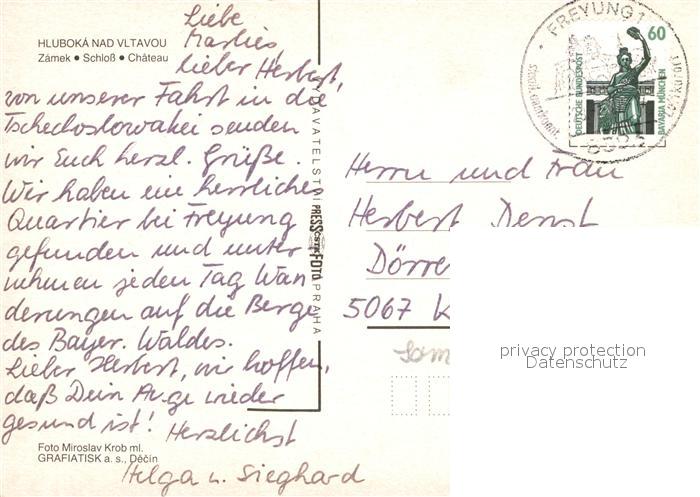 HLUBOKÁ NAD VLTAVOU
Zámek • Schloß • Château
Liebe
Marlies
lieber Herbert,
von unserer Fahrt in die
Tschechoslowakei senden
wir Euch herzl. Grüße.
Wir haben ein herrliches
Quartier bei Freyung
gefunden und unter-
nehmen jeden Tag Wan
derungen auf die Berge
des Bayer. Waldes.
Lieber Herbert, wir hoffen,
daß Dein Auge wieder
gesund ist!
Herzlichst
Helga u. Sieghard
Foto Miroslav Krob ml.
GRAFIATISK a. s., Děčín
VYDAVATELSTVÍ
PRESSFOTO
PRAHA
FREYUNG 1
60
DEUTSCHE BUNDESPOST
BAVARIA MÜNCHEN
Herrn und Frau
Herbert Denst
Dörre
5067 K
privacy protection
Datenschutz